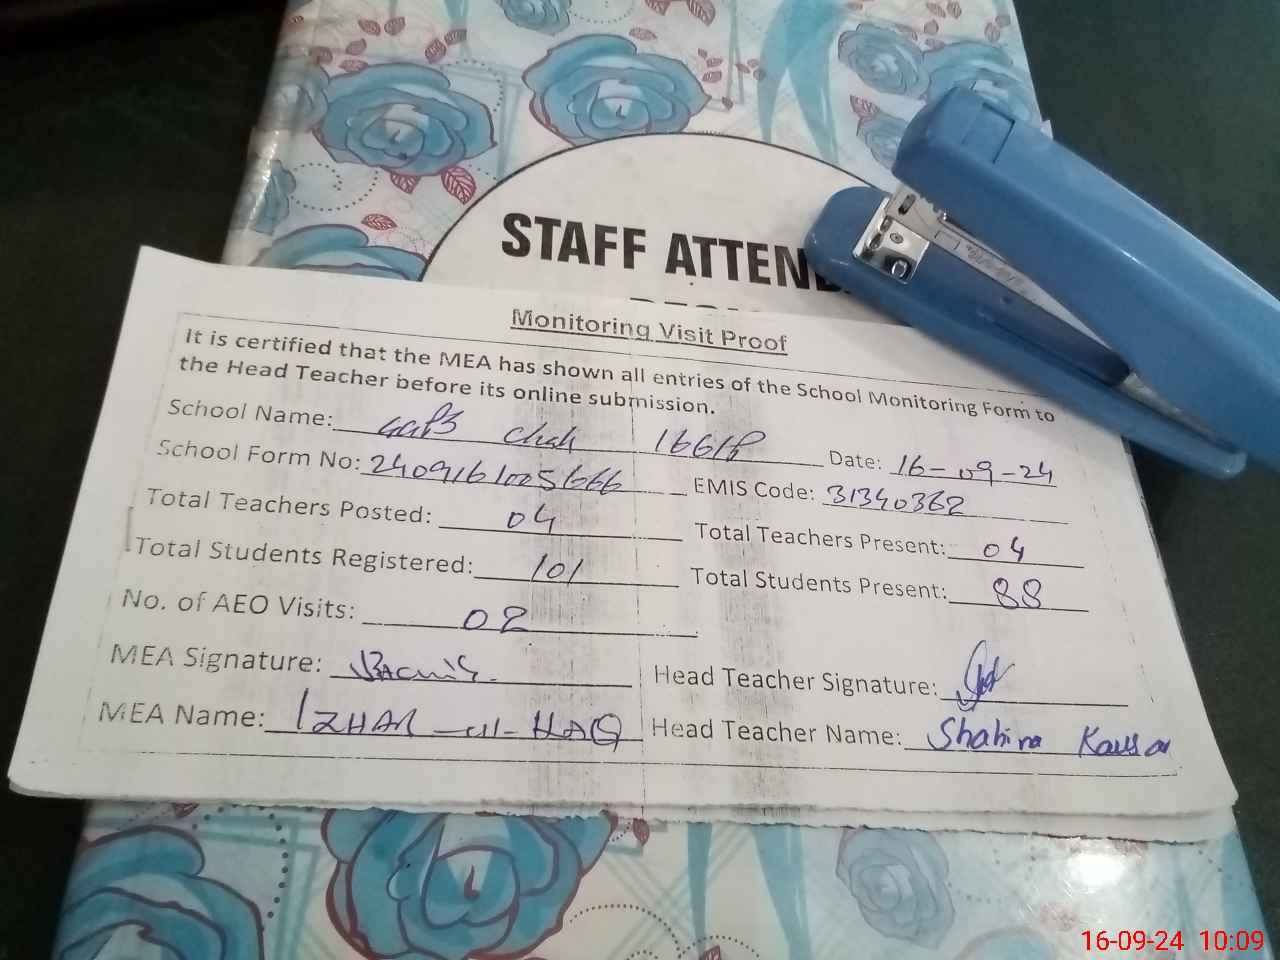 STAFF ATTEND
Monitoring Visit Proof
It is certified that the MEA has shown all entries of the School Monitoring Form to
the Head Teacher before its online submission.
School Name: GGPS Chak 166/P Date: 16-09-24
School Form No: 2409161005666 EMIS Code: 31340362
Total Teachers Posted: 04 Total Teachers Present: 04
Total Students Registered: 101 Total Students Present: 88
No. of AEO Visits: 02
MEA Signature: Head Teacher Signature:
MEA Name: IZHAR-ul-HAQ Head Teacher Name: Shahina Kausar
16-09-24 10:09